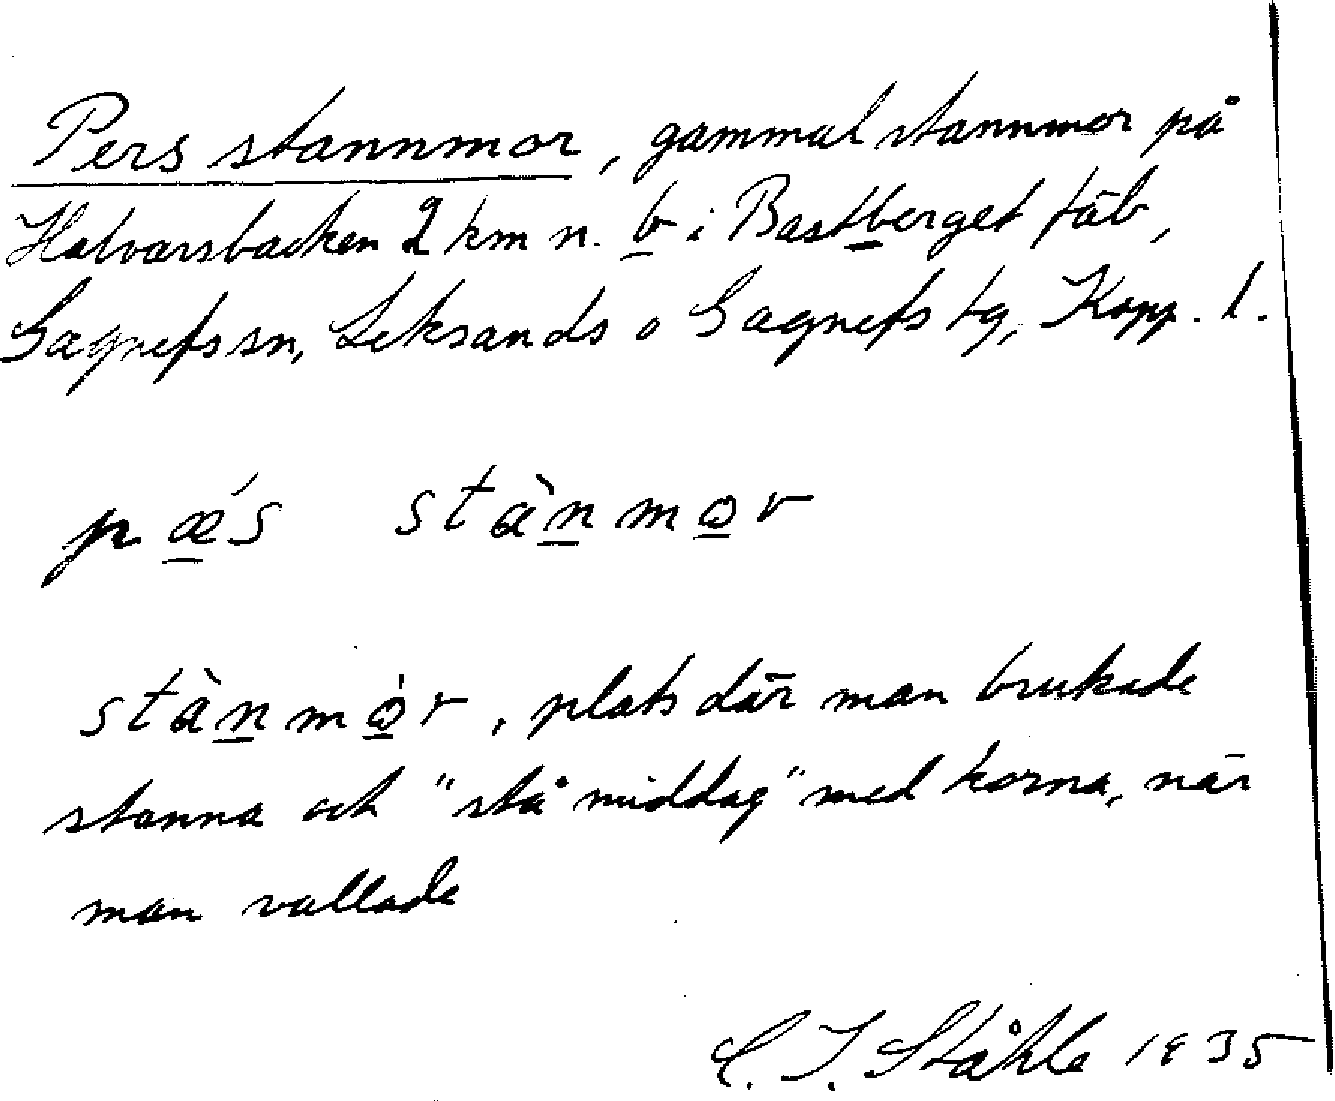 Pers stannmor, gammal stannmor på
Halvarsbacken 2 km n. b i Bastberget fäb,
Gagnefs sn, Leksands o Gagnefs tg, Kopp. l.
pæ´s stànmor
stànmòr, plats där man brukade
stanna och "stå middag" med korna, när
man vallade
C. I. Ståhle 1935